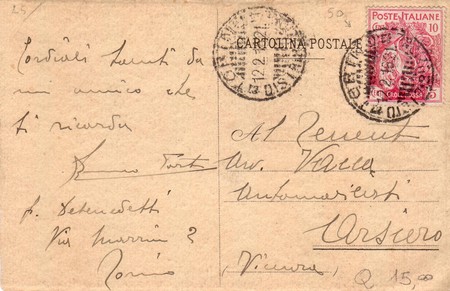 25
50
CARTOLINA POSTALE
POSTE ITALIANE
10
5
TORINO
12.2.
DISTRIB
Cordiali saluti da
un amico che
ti ricorda
Bruno
p. Debenedetti
Via 2
Torino
Al Tenent
Avv. Vacca
Automobilisti
Arsiero
(Vicenza)
Q 15,00